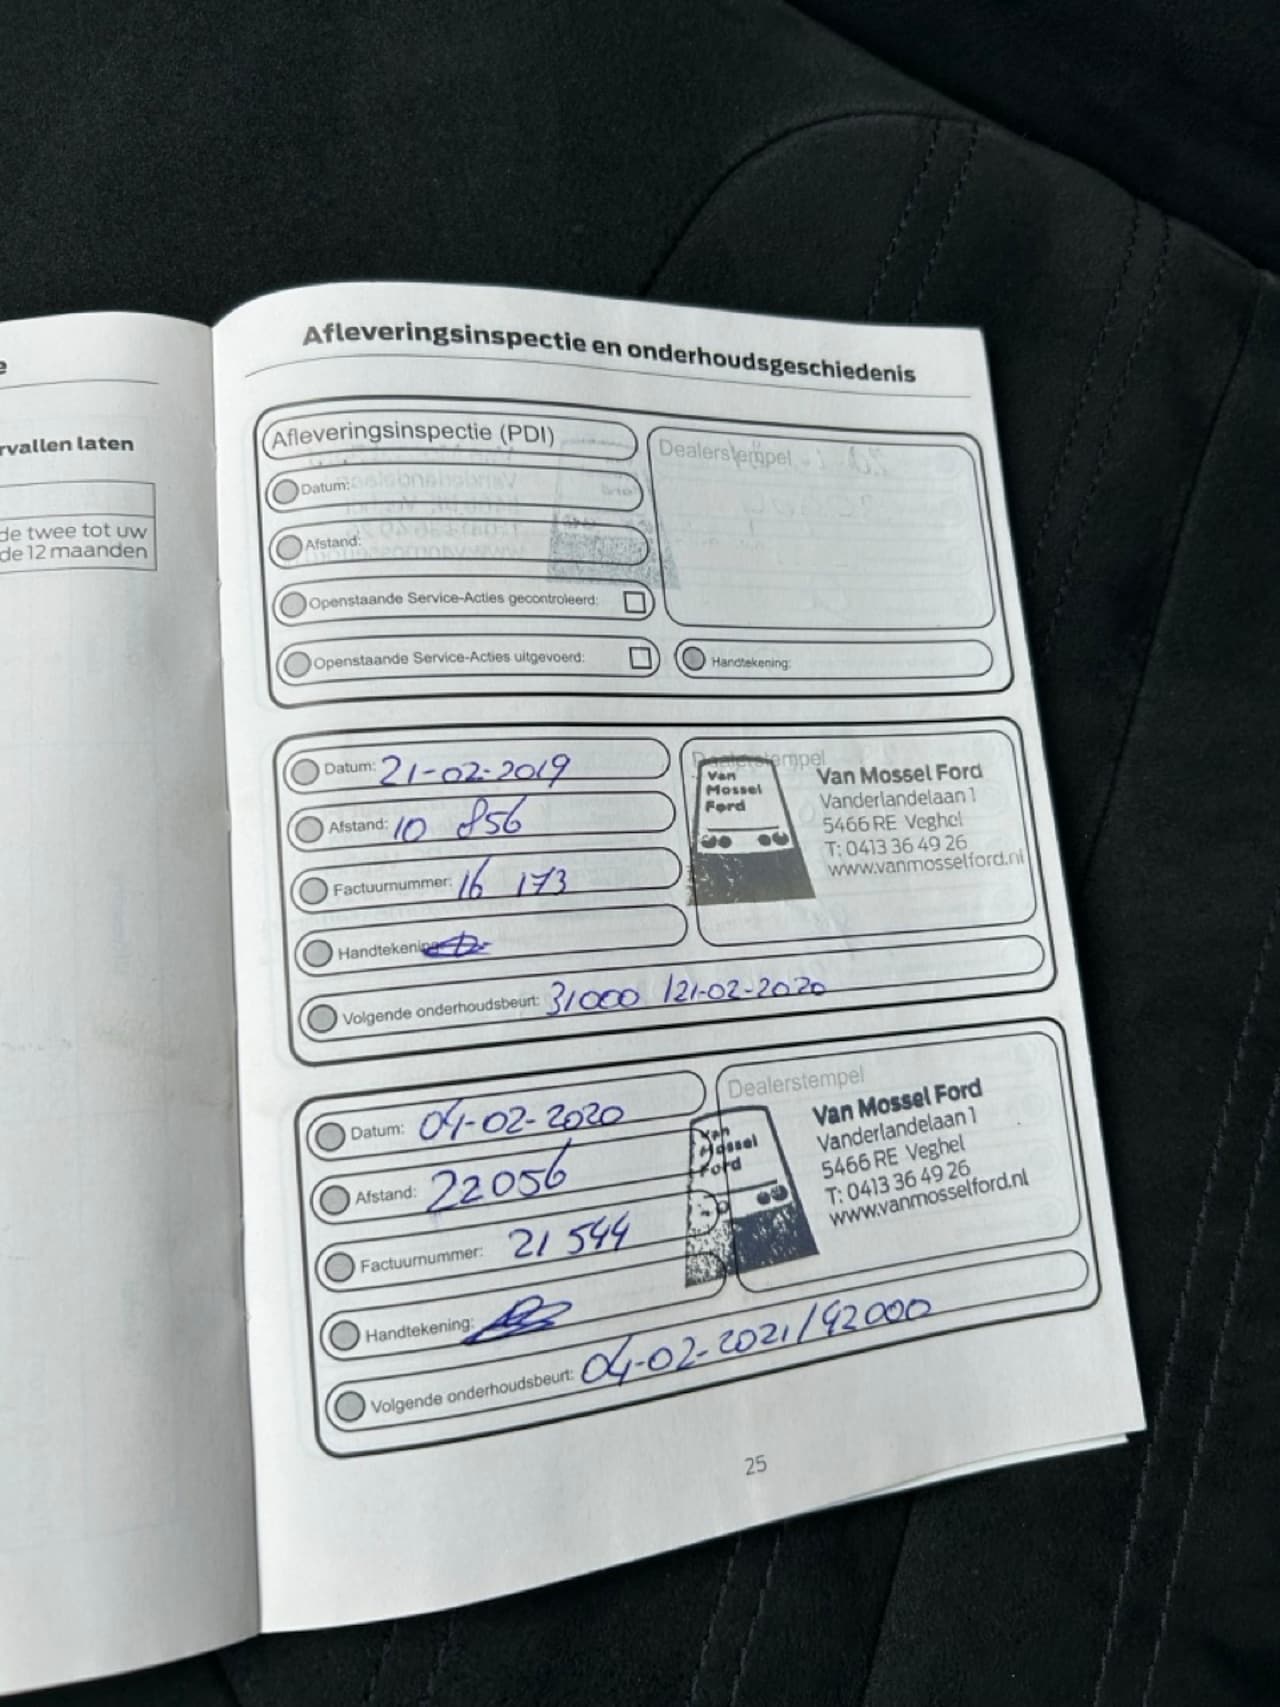 e
rvallen laten
de twee tot uw
de 12 maanden
Afleveringsinspectie en onderhoudsgeschiedenis
Afleveringsinspectie (PDI)
Dealerstempel
Datum:
Afstand:
Openstaande Service-Acties gecontroleerd:
Openstaande Service-Acties uitgevoerd:
Handtekening:
Datum: 21-02-2019
Afstand: 10 856
Factuurnummer: 16 173
Handtekening
Volgende onderhoudsbeurt: 31000 / 21-02-2020
Dealerstempel
Van
Mossel
Ford
Van Mossel Ford
Vanderlandelaan 1
5466 RE Veghel
T: 0413 36 49 26
www.vanmosselford.nl
Datum: 04-02-2020
Afstand: 22056
Factuurnummer: 21 544
Handtekening:
Volgende onderhoudsbeurt: 04-02-2021/42000
Dealerstempel
Van
Mossel
Ford
Van Mossel Ford
Vanderlandelaan 1
5466 RE Veghel
T: 0413 36 49 26
www.vanmosselford.nl
25